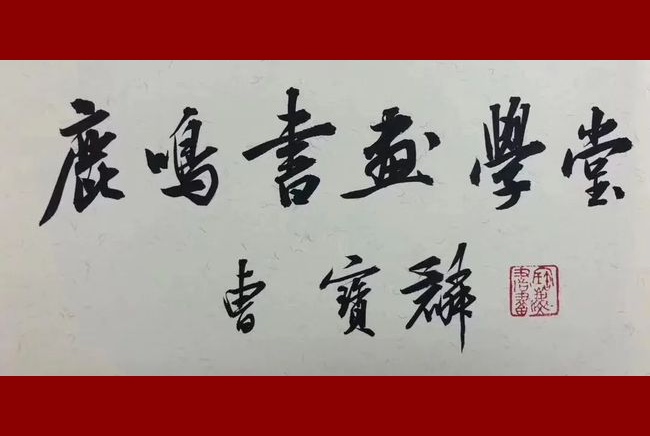 鹿鳴書畫學堂
曹寶麟
書畫